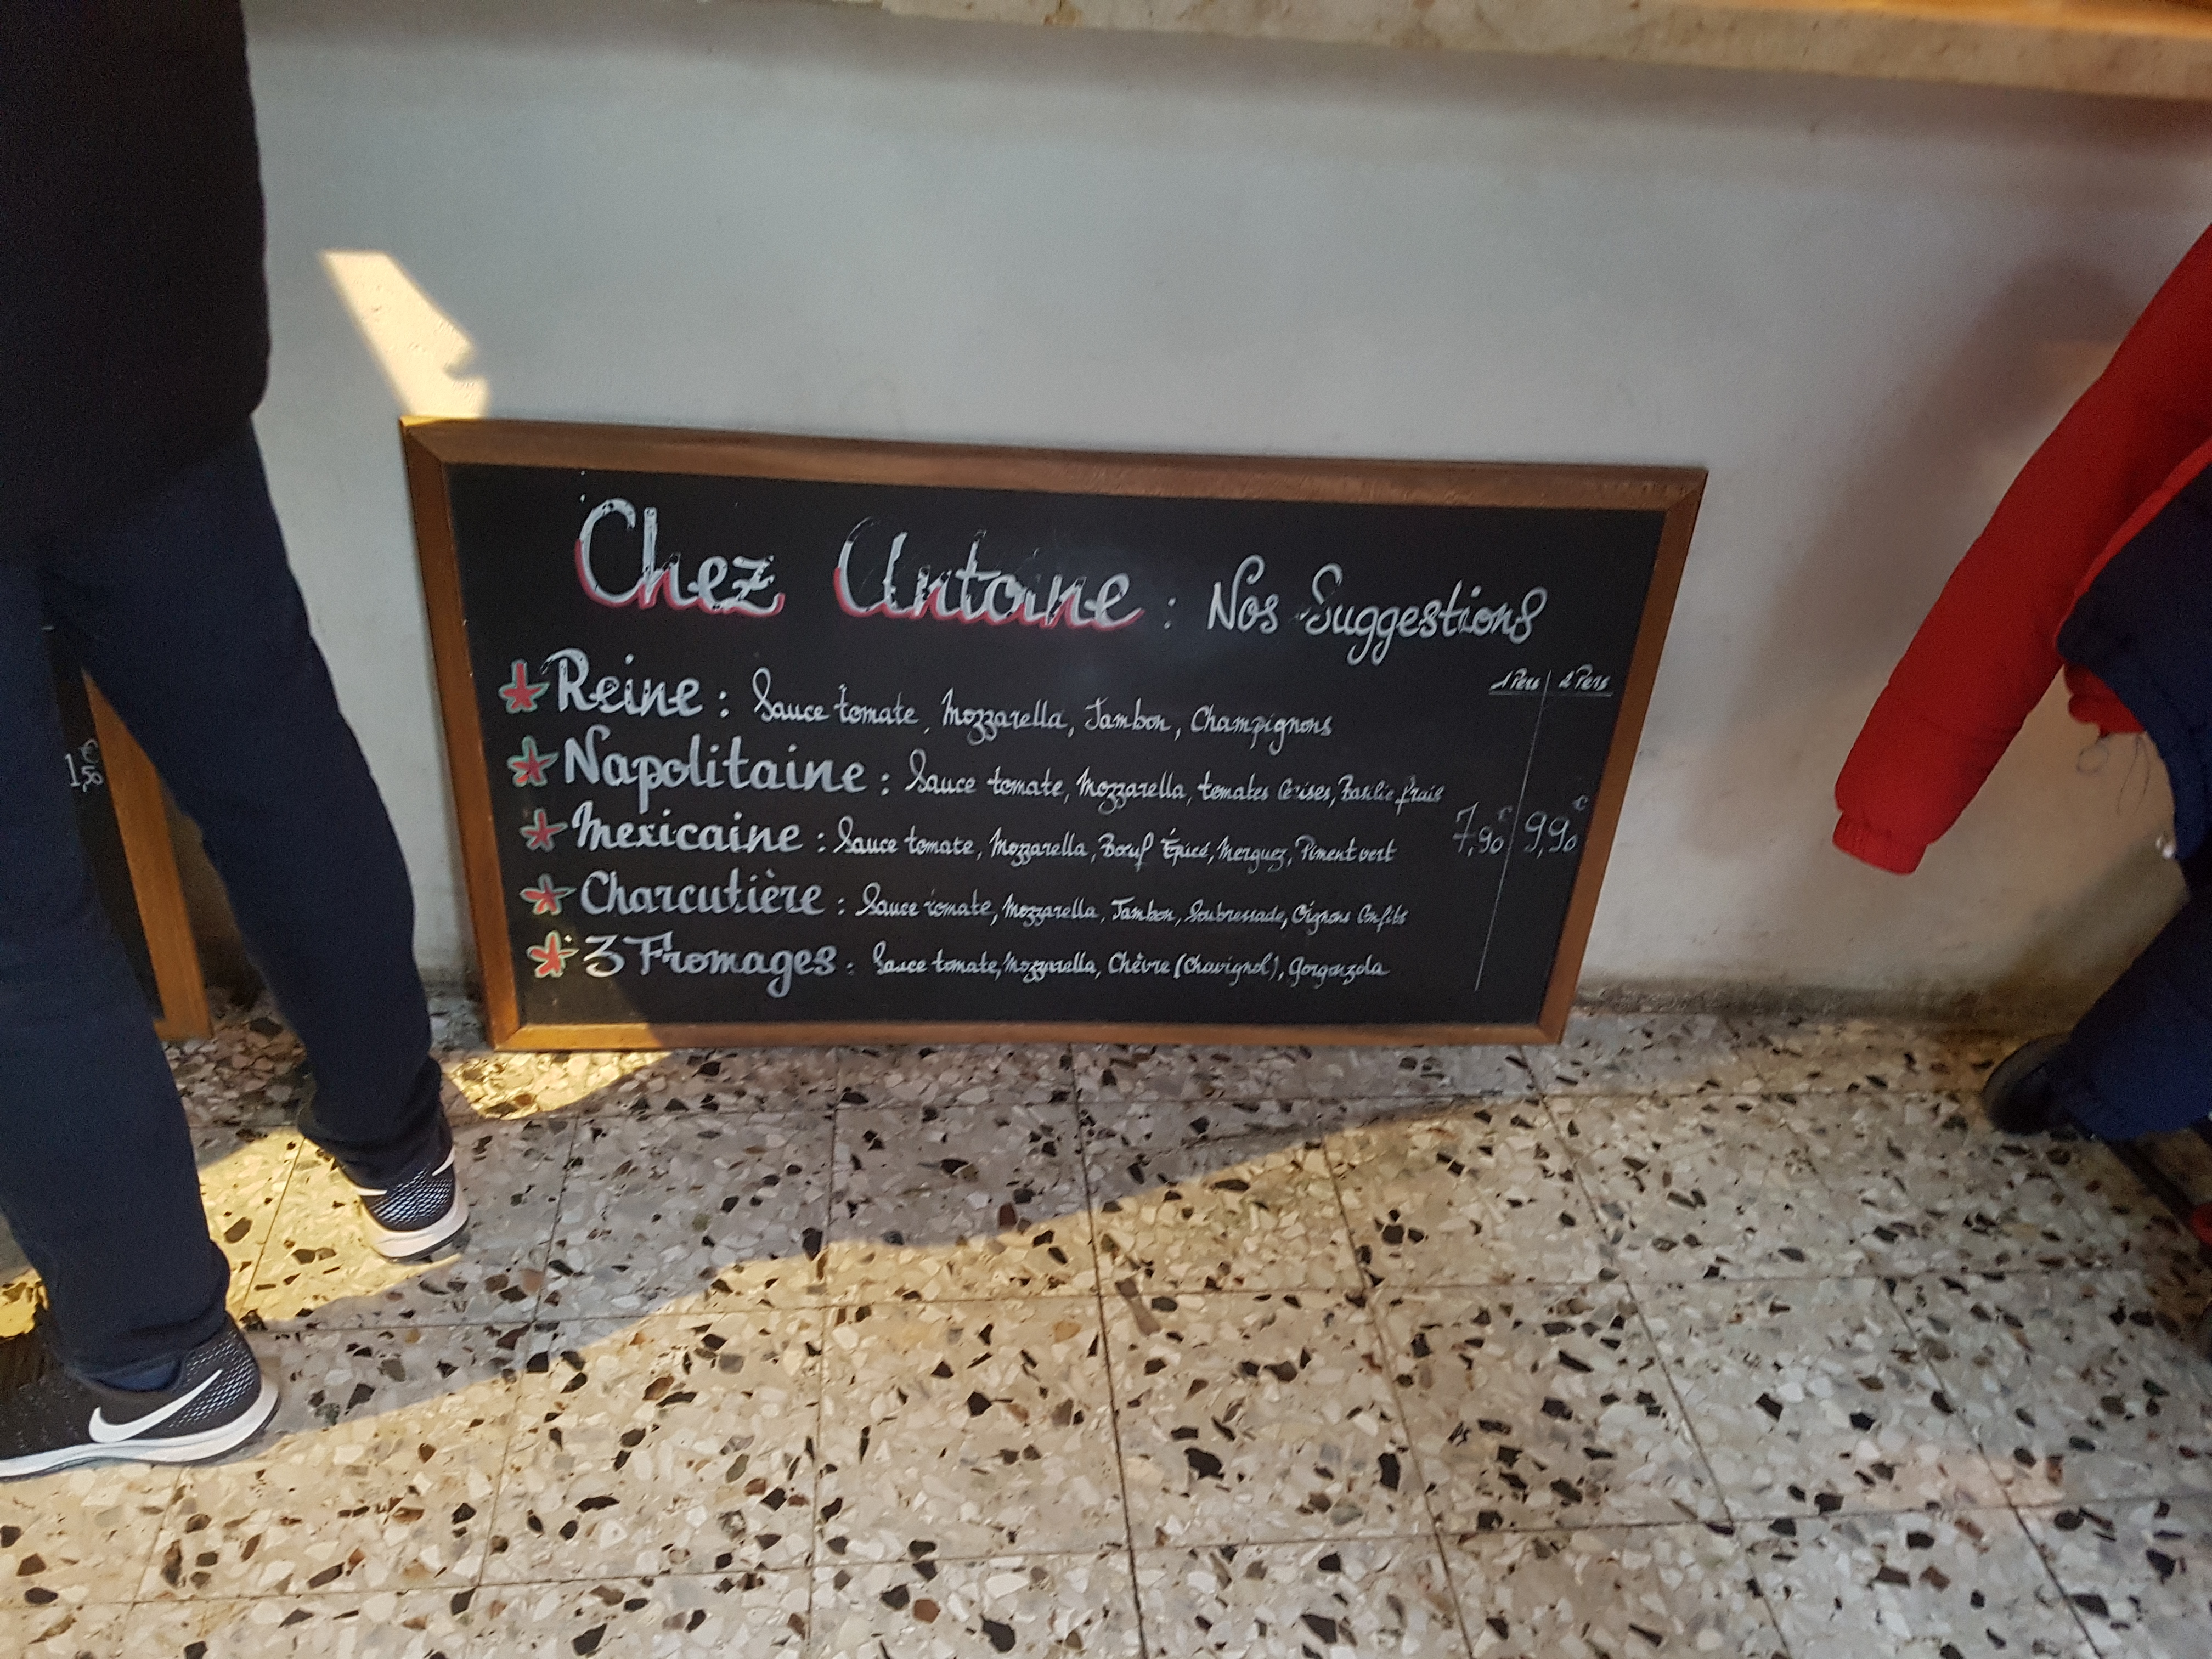 Chez Antoine : Nos Suggestions
1 Pers 2 Pers
Reine : Sauce tomate, Mozzarella, Jambon, Champignons
Napolitaine : Sauce tomate, Mozzarella, tomates Cerises, Basilic frais
Mexicaine : Sauce tomate, Mozzarella, Bœuf Épicé, Merguez, Piment vert
7,90€ 9,90€
Charcutière : Sauce tomate, Mozzarella, Jambon, Soubressade, Oignons Confits
3 Fromages : Sauce tomate, Mozzarella, Chèvre (Chavignol), Gorgonzola
€
1,50